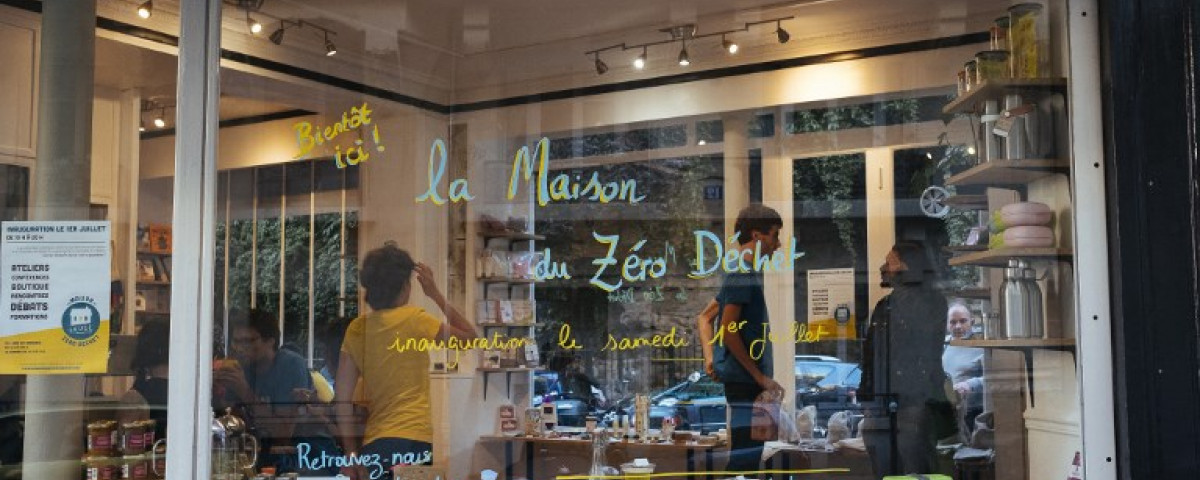 Bientôt
ici !
la Maison
du Zéro Déchet
inauguration le samedi 1er Juillet
Retrouvez-nous
INAUGURATION LE 1ER JUILLET
ATELIERS
CONFÉRENCES
BOUTIQUE
RENCONTRES
DÉBATS
FORMATIONS
MAISON
ZERO DECHET